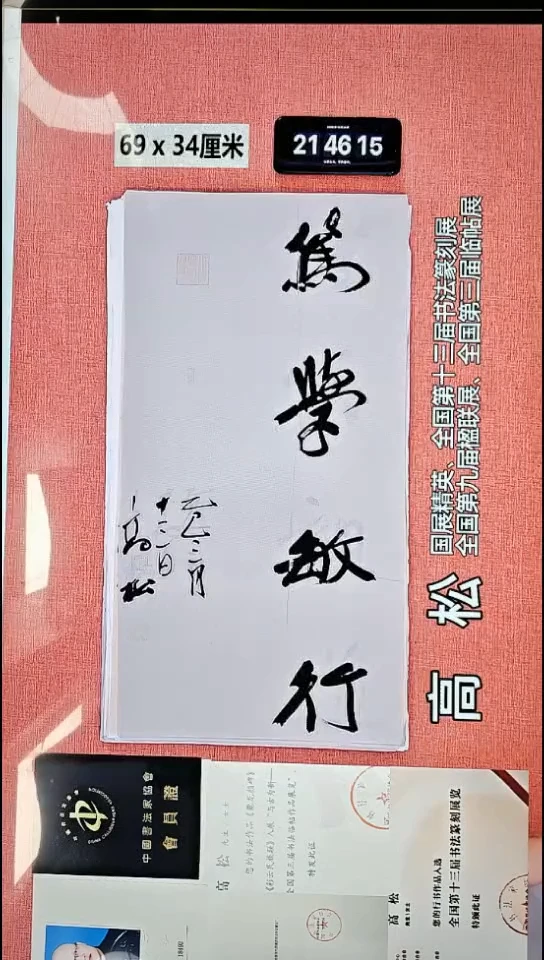 69 x 34厘米
21 46 15
篤學敏行
三月
十二日
高松
高 松
国展精英、全国第十三届书法篆刻展
全国第九届楹联展、全国第三届临帖展
中國書法家協會
會員證
高 松
全国第三届书法临帖作品展览
特发此证
高 松
您的行书作品入选
全国第十三届书法篆刻展览
特颁此证